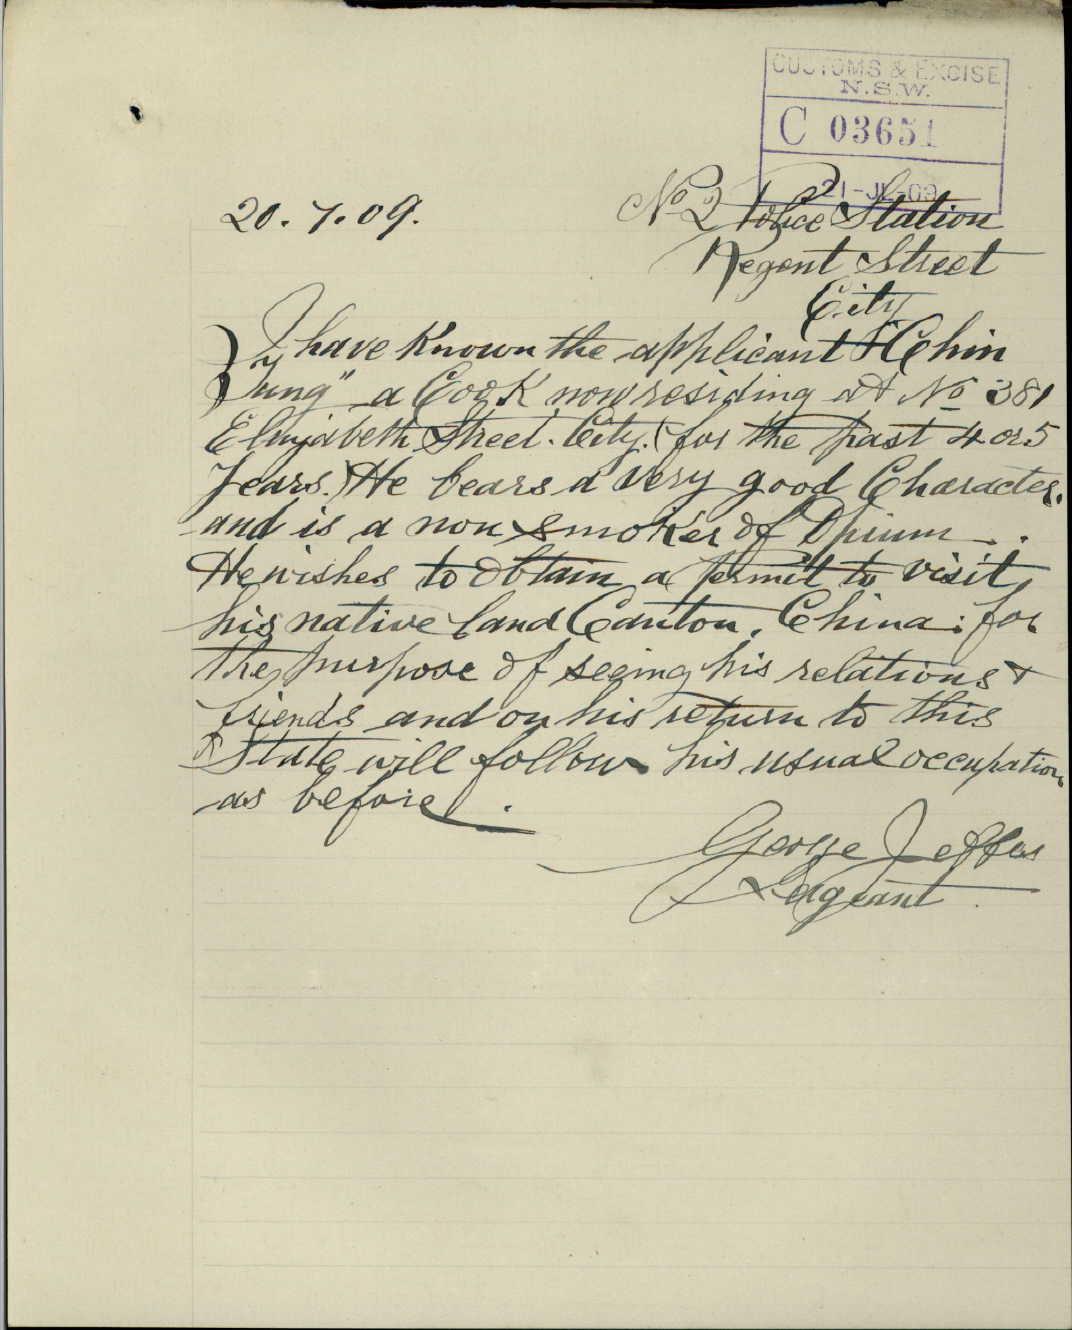 CUSTOMS & EXCISE
N.S.W.
C 03651
21-JL-09
20.7.09.
No 2 Police Station
Regent Street
City
I have Known the applicant "Chin
Tung" a Cook now residing at No 381
Elizabeth Street. City. (for the past 4 or 5
Years.) He bears a very good Character.
and is a non smoker of Opium..
He wishes to obtain a permit to visit
his native land Canton, China: for
the purpose of seeing his relations &
friends and on his return to this
State will follow his usual occupation
as before.
George Jeffes
Sergeant